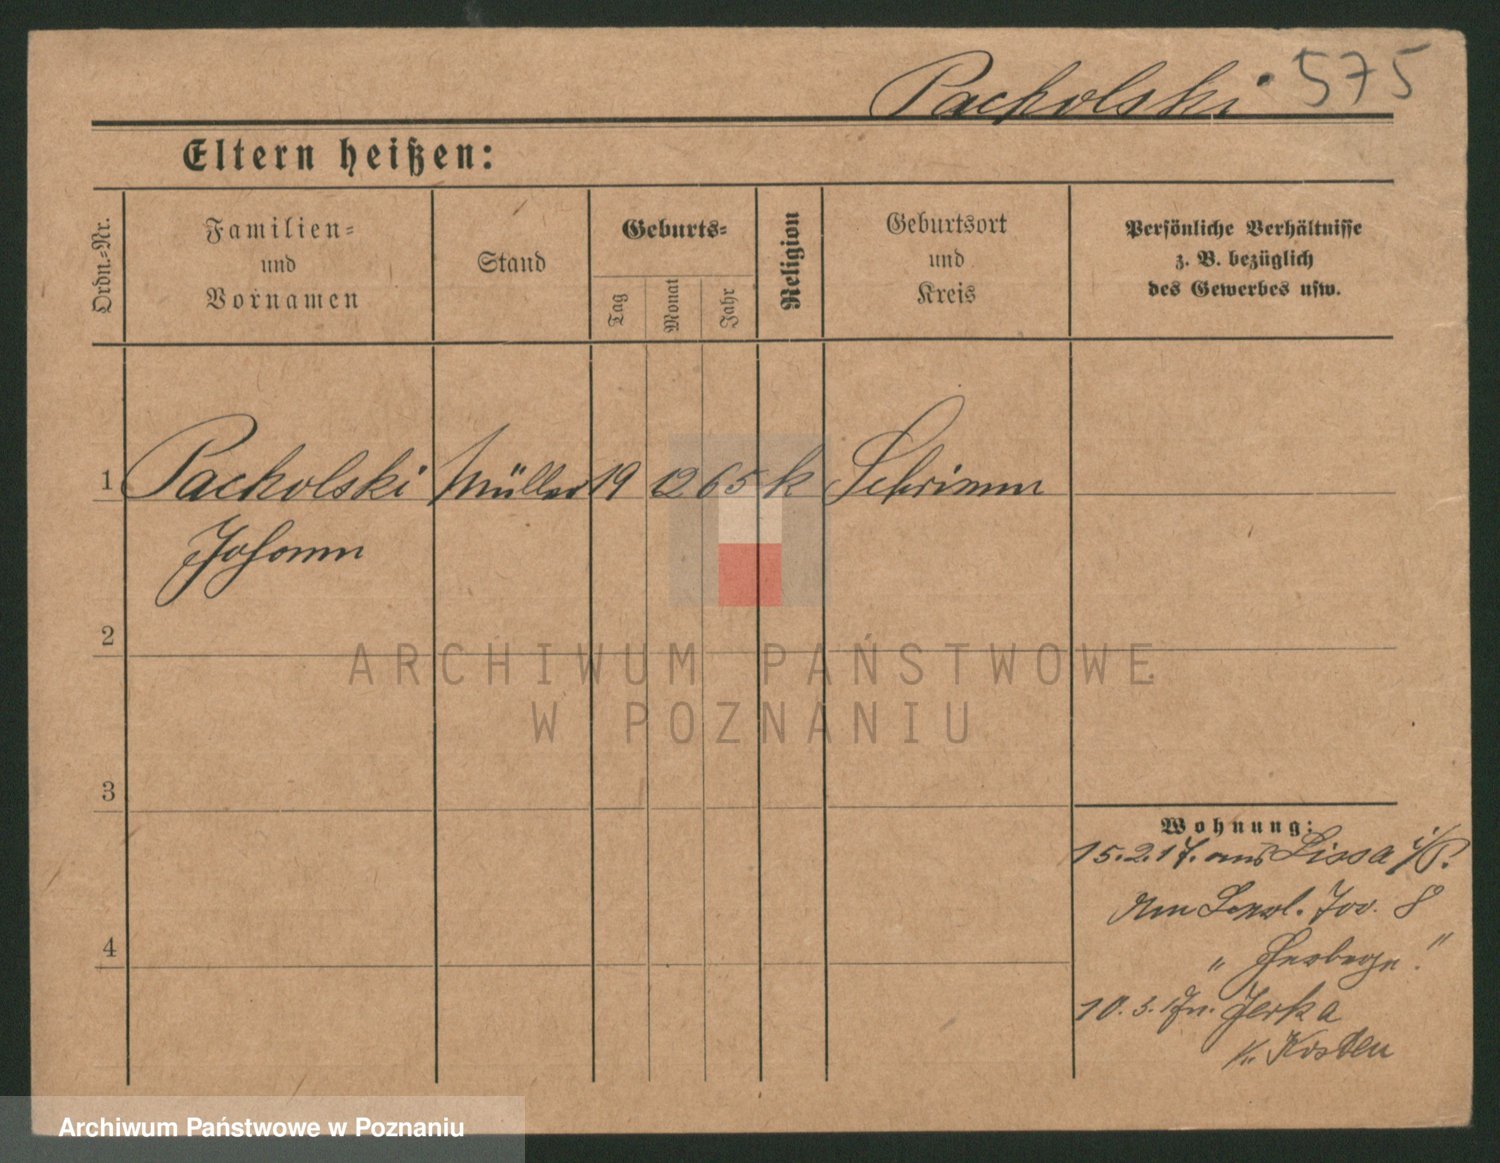 Pacholski 575
Eltern heißen:
Ordn.-Nr.
Familien-
und
Vornamen
Stand
Geburts-
Tag
Monat
Jahr
Religion
Geburtsort
und
Kreis
Persönliche Verhältnisse
z. B. bezüglich
des Gewerbes usw.
1 Pacholski Müller 19 12 65 k Schrimm
Johann
2
3
4
Wohnung:
15.2.17. aus Lissa i/P.
Am 8
"Herberge."
10.3.17 n. Jerka
Kr. Kosten
ARCHIWUM PAŃSTWOWE
W POZNANIU
Archiwum Państwowe w Poznaniu